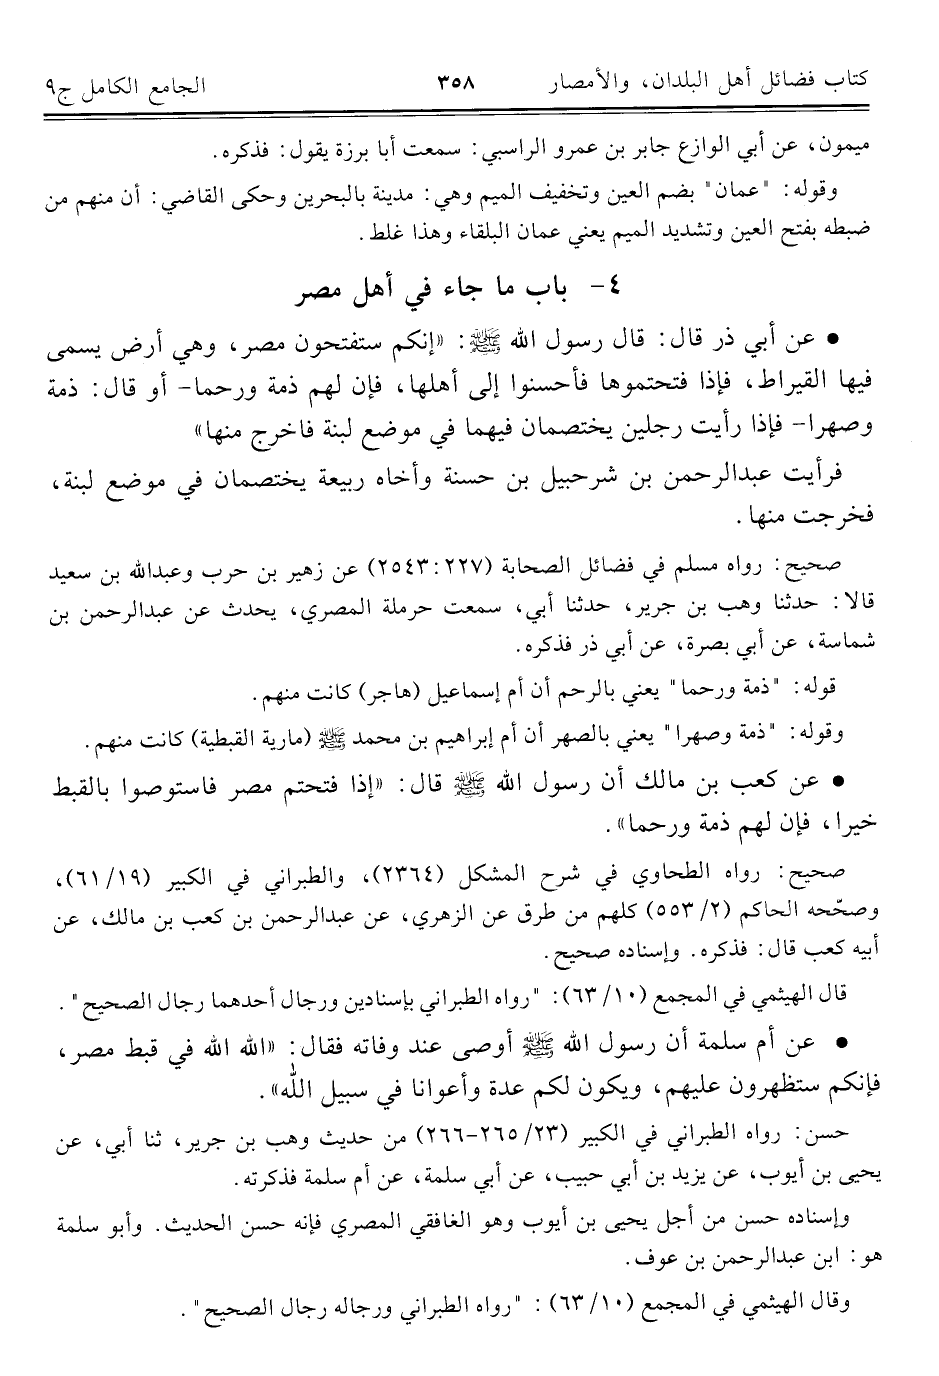 كتاب فضائل أهل البلدان، والأمصار ٣٥٨ الجامع الكامل ج٩
ميمون، عن أبي الوازع جابر بن عمرو الراسبي: سمعت أبا برزة يقول: فذكره.
وقوله: "عمان" بضم العين وتخفيف الميم وهي: مدينة بالبحرين وحكى القاضي: أن منهم من
ضبطه بفتح العين وتشديد الميم يعني عمان البلقاء وهذا غلط.
٤- باب ما جاء في أهل مصر
• عن أبي ذر قال: قال رسول الله ﷺ: «إنكم ستفتحون مصر، وهي أرض يسمى
فيها القيراط، فإذا فتحتموها فأحسنوا إلى أهلها، فإن لهم ذمة ورحما- أو قال: ذمة
وصهرا- فإذا رأيت رجلين يختصمان فيهما في موضع لبنة فاخرج منها»
فرأيت عبدالرحمن بن شرحبيل بن حسنة وأخاه ربيعة يختصمان في موضع لبنة،
فخرجت منها.
صحيح: رواه مسلم في فضائل الصحابة (٢٥٤٣:٢٢٧) عن زهير بن حرب وعبدالله بن سعيد
قالا: حدثنا وهب بن جرير، حدثنا أبي، سمعت حرملة المصري، يحدث عن عبدالرحمن بن
شماسة، عن أبي بصرة، عن أبي ذر فذكره.
قوله: "ذمة ورحما" يعني بالرحم أن أم إسماعيل (هاجر) كانت منهم.
وقوله: "ذمة وصهرا" يعني بالصهر أن أم إبراهيم بن محمد ﷺ (مارية القبطية) كانت منهم.
• عن كعب بن مالك أن رسول الله ﷺ قال: «إذا فتحتم مصر فاستوصوا بالقبط
خيرا، فإن لهم ذمة ورحما».
صحيح: رواه الطحاوي في شرح المشكل (٢٣٦٤)، والطبراني في الكبير (٦١/١٩)،
وصحّحه الحاكم (٥٥٣/٢) كلهم من طرق عن الزهري، عن عبدالرحمن بن كعب بن مالك، عن
أبيه كعب قال: فذكره. وإسناده صحيح.
قال الهيثمي في المجمع (٦٣/١٠): "رواه الطبراني بإسنادين ورجال أحدهما رجال الصحيح".
• عن أم سلمة أن رسول الله ﷺ أوصى عند وفاته فقال: «الله الله في قبط مصر،
فإنكم ستظهرون عليهم، ويكون لكم عدة وأعوانا في سبيل الله».
حسن: رواه الطبراني في الكبير (٢٣/ ٢٦٥-٢٦٦) من حديث وهب بن جرير، ثنا أبي، عن
يحيى بن أيوب، عن يزيد بن أبي حبيب، عن أبي سلمة، عن أم سلمة فذكرته.
وإسناده حسن من أجل يحيى بن أيوب وهو الغافقي المصري فإنه حسن الحديث. وأبو سلمة
هو: ابن عبدالرحمن بن عوف.
وقال الهيثمي في المجمع (٦٣/١٠): "رواه الطبراني ورجاله رجال الصحيح".